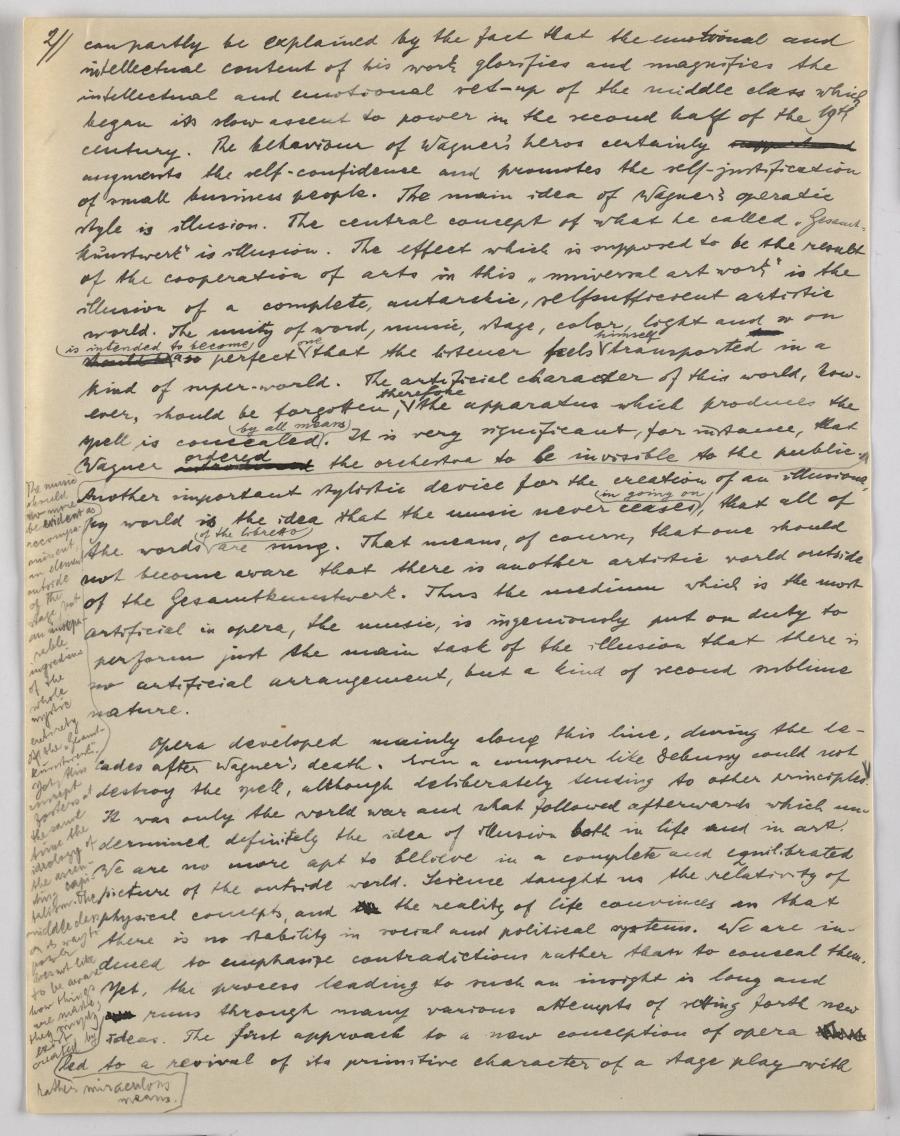 2//
can partly be explained by the fact that the emotional and
intellectual content of his work glorifies and magnifies the
intellectual and emotional set-up of the middle class which
began its slow ascent to power in the second half of the 19th
century. The behaviour of Wagner's heros certainly
augments the self-confidence and promotes the self-justification
of small business people. The main idea of Wagner's operatic
style is illusion. The central concept of what he called „Gesamt-
kunstwerk" is illusion. The effect which is supposed to be the result
of the cooperation of arts in this „universal art work" is the
illusion of a complete, autarchic, selfsufficient artistic
world. The unity of word, music, stage, color, light and so on
is intended to become one himself
so perfect that the listener feels transported in a
kind of super-world. The artificial character of this world, how-
therefore
ever, should be forgotten, the apparatus which produces the
by all means
spell is concealed. It is very significant, for instance, that
ordered
Wagner the orchestra to be invisible to the public.
Another important stylistic device for the creation of an illusiona-
in going on
ry world is the idea that the music never ceases, that all of
of the libretto
the words are sung. That means, of course, that one should
not become aware that there is another artistic world outside
of the Gesamtkunstwerk. Thus the medium which is the most
artificial in opera, the music, is ingeniously put on duty to
perform just the main task of the illusion that there is
no artificial arrangement, but a kind of second sublime
nature.
Opera developed mainly along this line, during the de-
cades after Wagner's death. Even a composer like Debussy could not
destroy the spell, although deliberately tending to other principles.
It was only the world war and what followed afterwards which un-
dermined definitely the idea of illusion both in life and in art.
We are no more apt to believe in a complete and equilibrated
picture of the outside world. Science taught us the relativity of
physical concepts, and the reality of life convinces us that
there is no stability in social and political systems. We are in-
duced to emphasize contradictions rather than to conceal them.
Yet, the process leading to such an insight is long and
runs through many various attempts of setting forth new
ideas. The first approach to a new conception of opera
led to a revival of its primitive character of a stage play with
The music
should
be evident as
accompa-
niment
an element
outside
of the
stage, but
an insepa-
rable
ingredient
of the
whole
mystic
entirety
of the „Gesamt-
kunstwerk".
Yet, this
concept
fosters at
the same
time the
ideology of
the ascen-
ding capi-
talism. The
middle class
on its way to
power
does not like
to be aware
how things
are made,
they simply
exist
created by
rather miraculous
means.